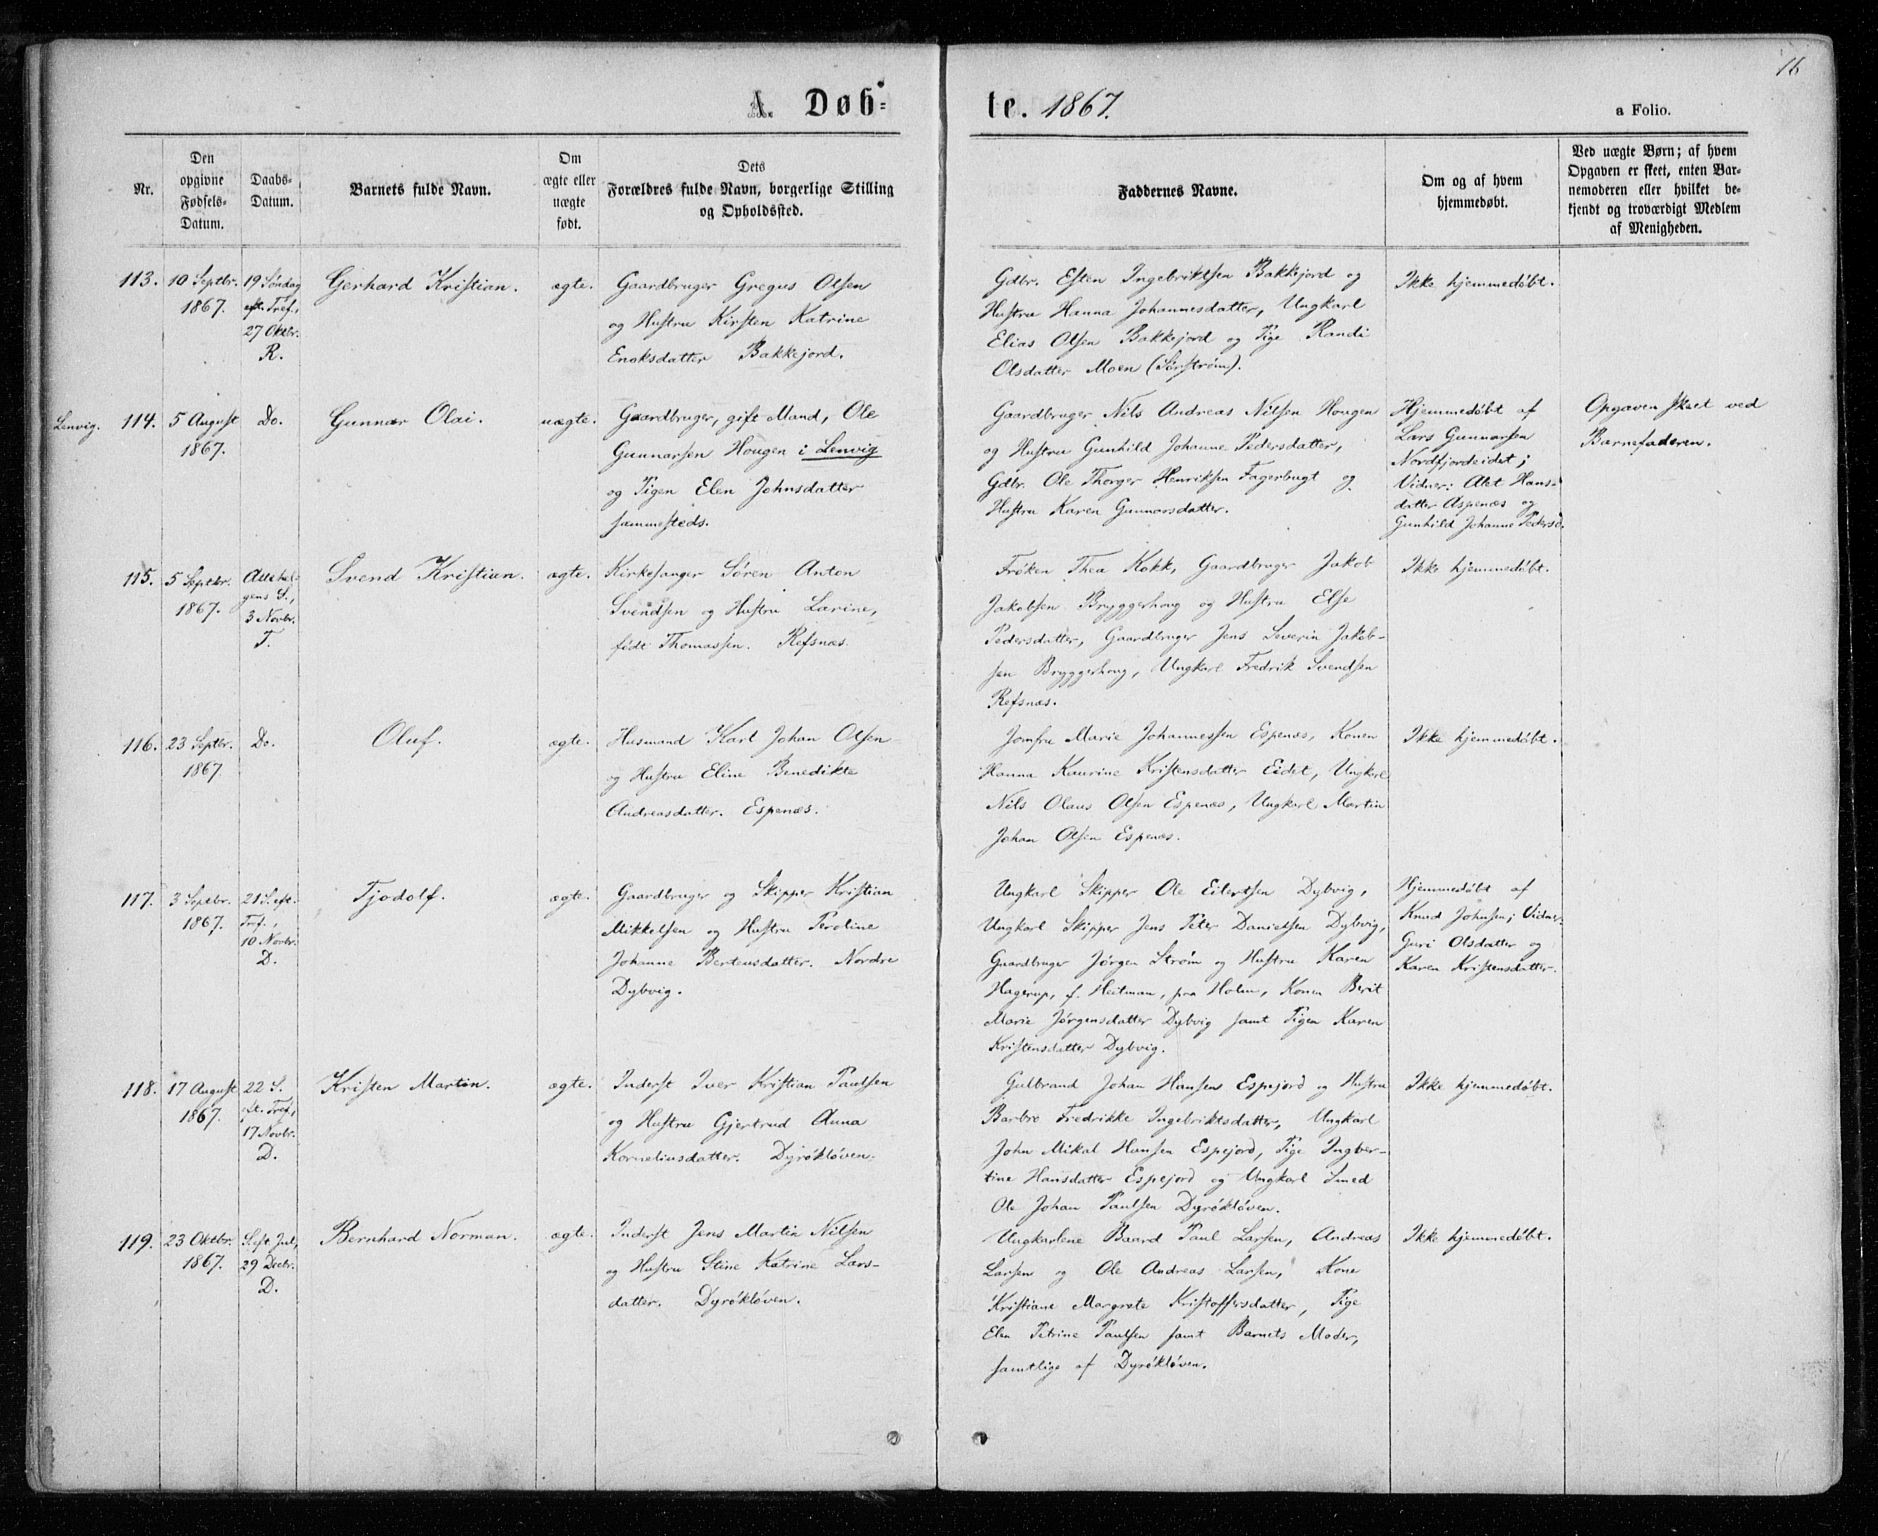 16
A. Døb-
te. 1867.
a Folio.
Nr.
Den
opgivne
Fødsels-
Datum.
Daabs-
Datum.
Barnets fulde Navn.
Om
ægte eller
uægte
født.
Dets
Forældres fulde Navn, borgerlige Stilling
og Opholdssted.
Faddernes Navne.
Om og af hvem
hjemmedøbt.
Ved uægte Børn; af hvem
Opgaven er skeet, enten Bar-
nemoderen eller hvilket be-
kjendt og troværdigt Medlem
af Menigheden.
113.
10 Septbr.
1867.
19 Søndag
eft. Tref.,
27 Oktbr.
R.
Gerhard Kristian.
ægte.
Gaardbruger Gregus Olsen
og Hustru Kirsten Katrine
Enoksdatter Bakkejord.
Gdbr. Esten Ingebriktsen Bakkejord og
Hustru Hanna Johannesdatter, Ungkarl
Elias Olsen Bakkejord og Pige Randi
Olsdatter Moen (Sørstrøm).
Ikke hjemmedøbt.
Lenvig.
114.
5 August
1867.
Do.
Gunnar Olai.
uægte.
Gaardbruger, gift Mand, Ole
Gunnarsen Hougen i Lenvig
og Pigen Elen Johnsdatter
sammesteds.
Gaardbruger Nils Andreas Nilsen Hougen
og Hustru Gunhild Johanne Pedersdatter,
Gdbr. Ole Thorger Henriksen Fagerbugt og
Hustru Karen Gunnarsdatter.
Hjemmedøbt af
Lars Gunnarsen
Nordfjordeidet;
Vidner: Alet Hans-
datter Aspenæs og
Gunhild Johanne Pedersd.
Opgaven skeet ved
Barnefaderen.
115.
5 Septbr.
1867.
Allehel-
gens S.,
3 Novbr.
T.
Svend Kristian.
ægte.
Kirkesanger Søren Anton
Svendsen og Hustru Larine,
født Thomassen. Refsnæs.
Frøken Thea Kokk, Gaardbruger Jakob
Jakobsen Bryggerhoug og Hustru Else
Pedersdatter, Gaardbruger Jens Severin Jakob-
sen Bryggerhoug, Ungkarl Fredrik Svendsen
Refsnæs.
Ikke hjemmedøbt.
116.
23 Septbr.
1867
Do.
Oluf.
ægte.
Husmand Karl Johan Olsen
og Hustru Eline Benedikte
Andreasdatter. Espenæs.
Jomfru Marie Johannessen Espenæs, Konen
Hanna Kaurine Kristensdatter Eidet, Ungkarl
Nils Olaus Olsen Espenæs, Ungkarl Martin
Johan Olsen Espenæs.
Ikke hjemmedøbt.
117.
3 Septbr.
1867.
21 S. eft.
Tref.,
10 Novbr.
D.
Tjodolf.
ægte.
Gaardbruger og Skipper Kristian
Mikkelsen og Hustru Peroline
Johanne Berteusdatter. Nordre
Dybvig.
Ungkarl Skipper Ole Eilertsen Dybvig,
Ungkarl Skipper Jens Peter Danielsen Dybvig,
Gaardbruger Jørgen Strøm og Hustru Karen
Hagerup, f. Heitman, fra Holm, Konen Berit
Marie Jørgensdatter Dybvig samt Pigen Karen
Kristensdatter Dybvig.
Hjemmedøbt af
Knud Johnsen; Vidner
Guri Olsdatter og
Karen Kristensdatter.
118.
17 August
1867.
22 S.
eft. Tref.,
17 Novbr.
D.
Kristen Martin.
ægte.
Inderst Iver Kristian Paulsen
og Hustru Gjertrud Anna
Korneliusdatter. Dyrøkløven.
Gulbrand Johan Hansens Espejord og Hustru
Barbro Fredrikke Ingebriktsdatter, Ungkarl
John Mikal Hansen Espejord, Pige Ingber-
tine Hansdatter Espejord og Ungkarl Smed
Ole Johan Paulsen Dyrøkløven.
Ikke hjemmedøbt.
119.
23 Oktbr.
1867.
S. eft Jul,
29 Decbr.
D.
Bernhard Norman.
ægte.
Inderst Jens Martin Nilsen
og Hustru Stine Katrine Lars-
datter. Dyrøkløven.
Ungkarlene Baard Paul Larsen, Andreas
Larsen og Ole Andreas Larsen, Kone
Kristiane Margrete Kristoffersdatter, Pige
Elen Petrine Paulsen samt Barnets Moder,
samtlige af Dyrøkløven.
Ikke hjemmedøbt.